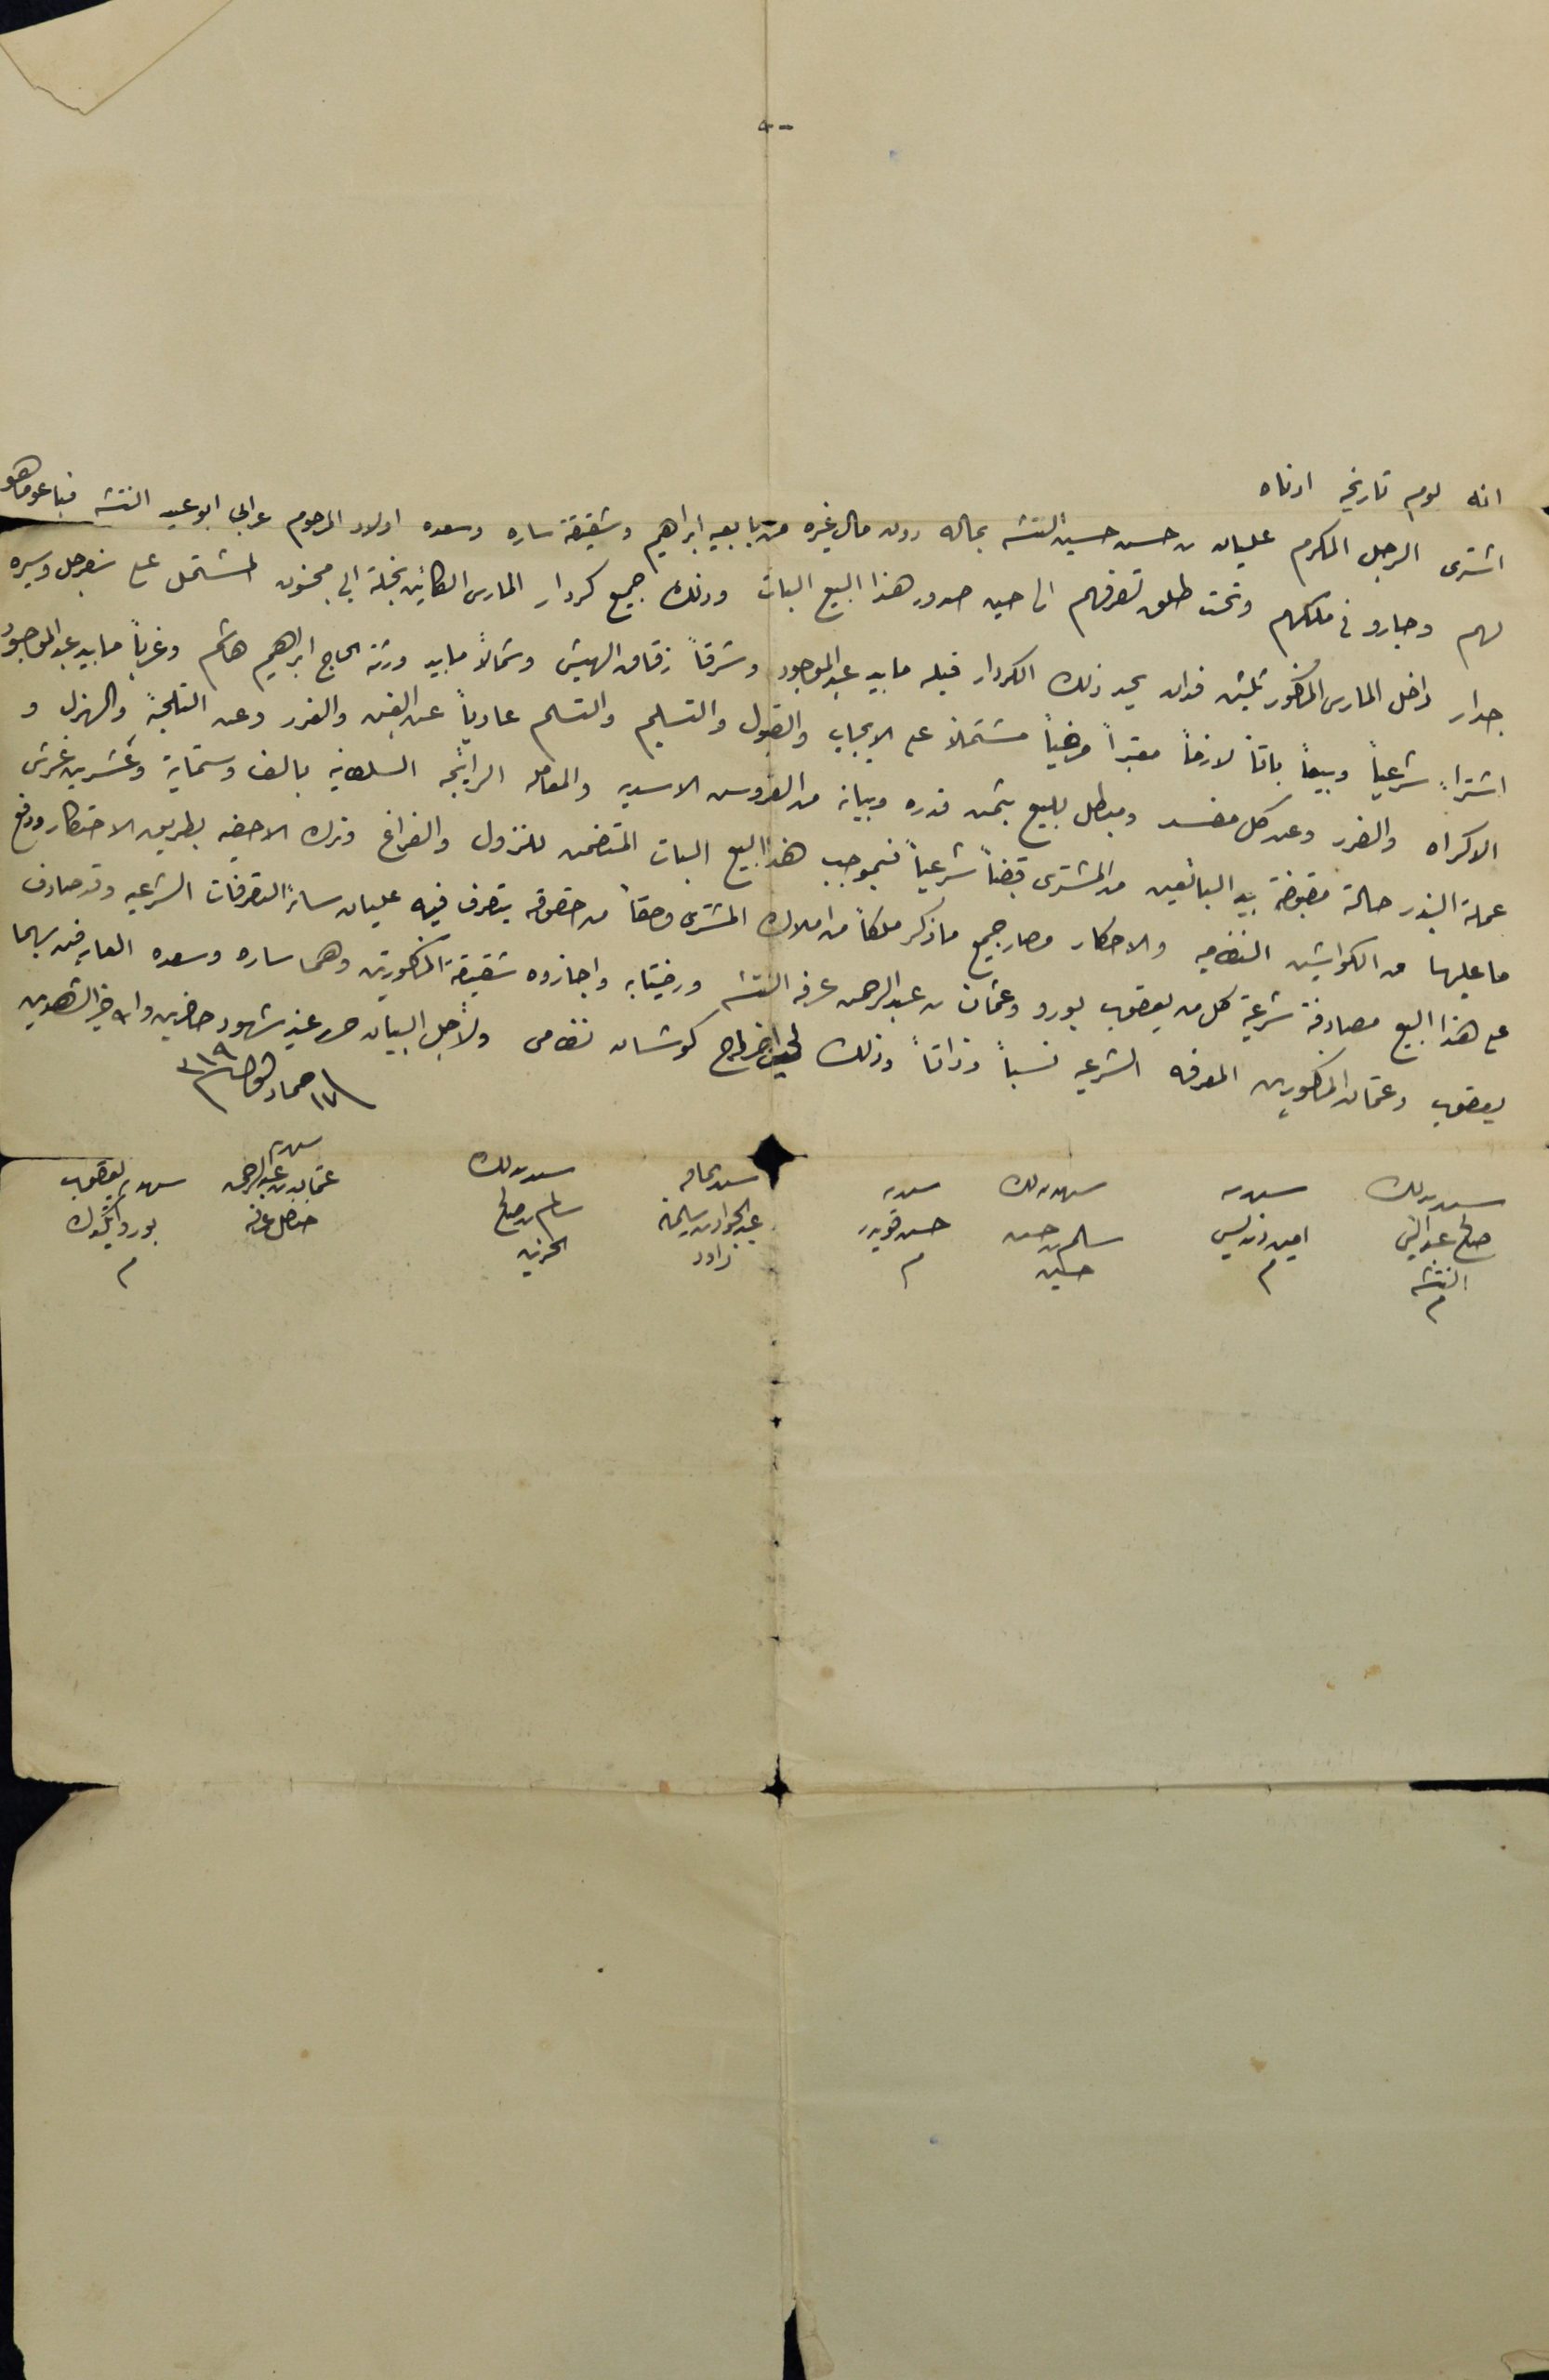 انه يوم تاريخه ادناه
اشترى الرجل المكرم عليان بن حسن حسين النتشه بماله دون مال غيره من بايعيه ابراهيم وشقيقته ساره وسعده اولاد المرحوم عرابي ابو عيد النتشه فباعو ما هو
لهم وجارو في ملكهم وتحت طلق تصرفهم الى حين صدور هذا البيع البات وذلك جميع كردار المارس الكائن بخلة ابي مجنون المشتمل على سفرجل وسيره
جدار داخل المارس المذكور ثلثين فدان يحد ذلك الكردار قبله مابيد عبد الموجود وشرقاً زقاق الهيش وشمالاً مابيد ورثة الحاج ابراهيم هاشم وغرباً مابيد عبد الموجود
اشتراءً شرعياً وبيعاً باتاً لازماً معتبراً مرضياً مشتملاً على الايجاب والقبول والتسليم والتسلم عارياً عن الغبن والغرر وعن التلجئة والهزل و
الاكراه والضرر وعن كل مفسد ومبطل للبيع بثمن قدره وبيانه من القروش الاسديه والمعامله الرايجه السلطانيه بالف وستماية وعشرين غرش
عملة البندر حالة مقبوضة بيد البائعين من المشترى قبضاً شرعياً فبموجب هذا البيع البات المتضمن للنزول والفراغ وترك الاحقيه بطريق الاحتكار ودفع
ما عليها من الكواشين النظاميه والاحكار وصار جميع ماذكر ملكاً من املاك المشترى وحقاً من حقوقه يتصرف فيه عليان سائر التصرفات الشرعيه وقد صادق
على هذا البيع مصادقة شرعية كل من يعقوب بورو وعثمان بن عبد الرحمن عرفه النتشه ورضيتا به واجازوه شقيقة المذكورتين وهما ساره وسعده العارفين بهما
يعقوب وعثمان المذكورين المعرفه الشرعيه نسباً وذاتاً وذلك لحين اخراج كوشان نظامى ولاجل البيان حرر عن يد شهود حاضرين والله خير الشاهدين
١٧ جماد سنة ٣١٩
شهد بذلك صالح عبد النبي النتشه م
شهد به امين م
شهد بذلك سالم بن حسن حسين
شهد به حسن قويدر م
شهد بما فيه عبد الجواد بن سليمان داود
شهد بذلك سالم بن صالح
شهد به عثمان بن عبد الرحمن عرفه
شهد به يعقوب بورو م